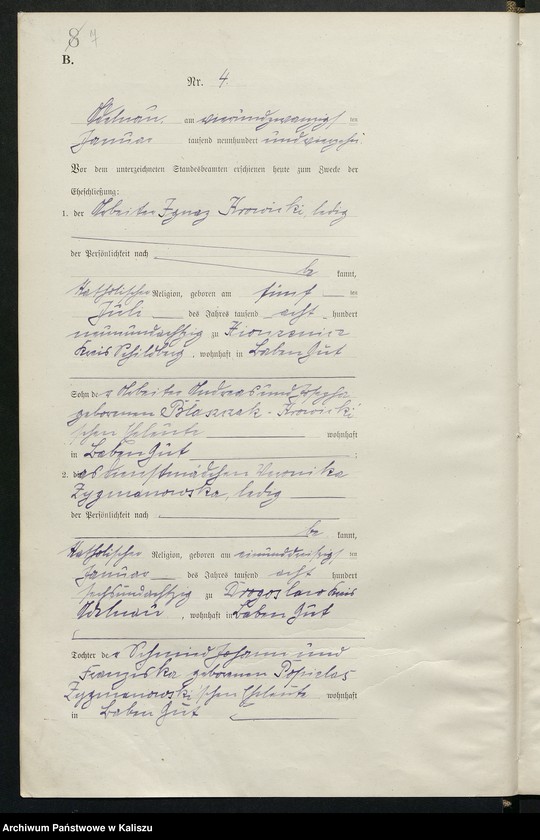 8 7
B.
Nr. 4.
Adelnau, am vierundzwanzigsten
Januar tausend neunhundert undvierzehn
Vor dem unterzeichneten Standesbeamten erschienen heute zum Zwecke der
Eheschließung:
1. der Arbeiter Ignaz Krowiski, ledig
der Persönlichkeit nach
be kannt,
katholischer Religion, geboren am fünften
Juli des Jahres tausend acht hundert
neunundachtzig zu
Kreis Schildberg, wohnhaft in Laben Gut
Sohn der Arbeiter Andreas und
geborenen Blaszczak - Krowiski
schen Eheleute wohnhaft
in Laben Gut ;
2. das Dienstmädchen Veronika
Zygmanowska, ledig
der Persönlichkeit nach
be kannt,
katholischer Religion, geboren am einunddreißigsten
Januar des Jahres tausend acht hundert
sechsundachtzig zu Drogoslaw Kreis
Adelnau, wohnhaft in Laben Gut
Tochter der Schmied Johann und
Franziska geborenen Popielas
Zygmanowskischen Eheleute wohnhaft
in Laben Gut
Archiwum Państwowe w Kaliszu